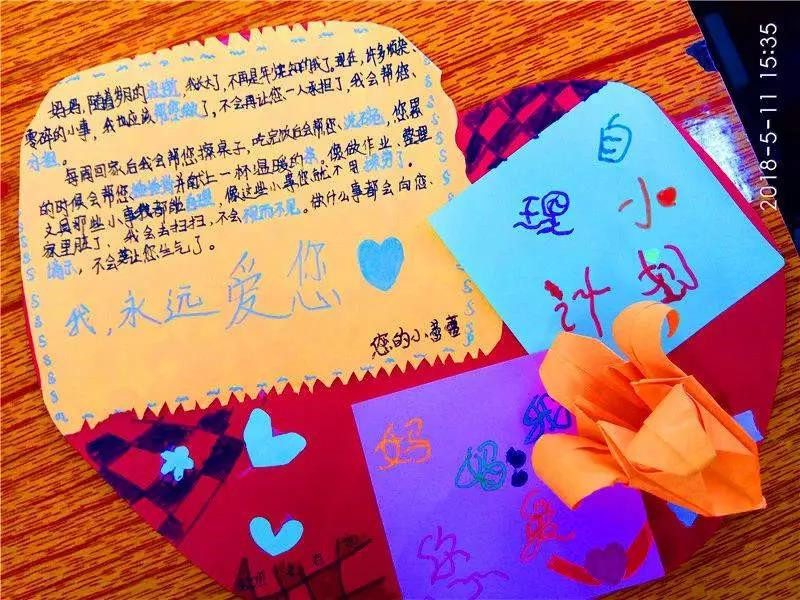 妈妈,随着岁月的流逝,我长大了,不再是年幼无知的我了。现在,许多烦杂、
零碎的小事,我也应该帮您做了,不会再让您一人承担了,我会帮您、
分担。
每周回家后我会帮您擦桌子,吃完饭后会帮您、洗碗,您累
的时候会帮您捶捶背并献上一杯温暖的茶。像做作业、整理
文具那些小事我都能自理,像这些小事您就不用操劳了。
家里脏了,我会去扫扫,不会视而不见。做什么事都会向您、
请示,不会再让您生气了。
我,永远爱您
您的小蔷蔷
自
理小
计划
妈
妈:我
最
2018-5-11 15:35